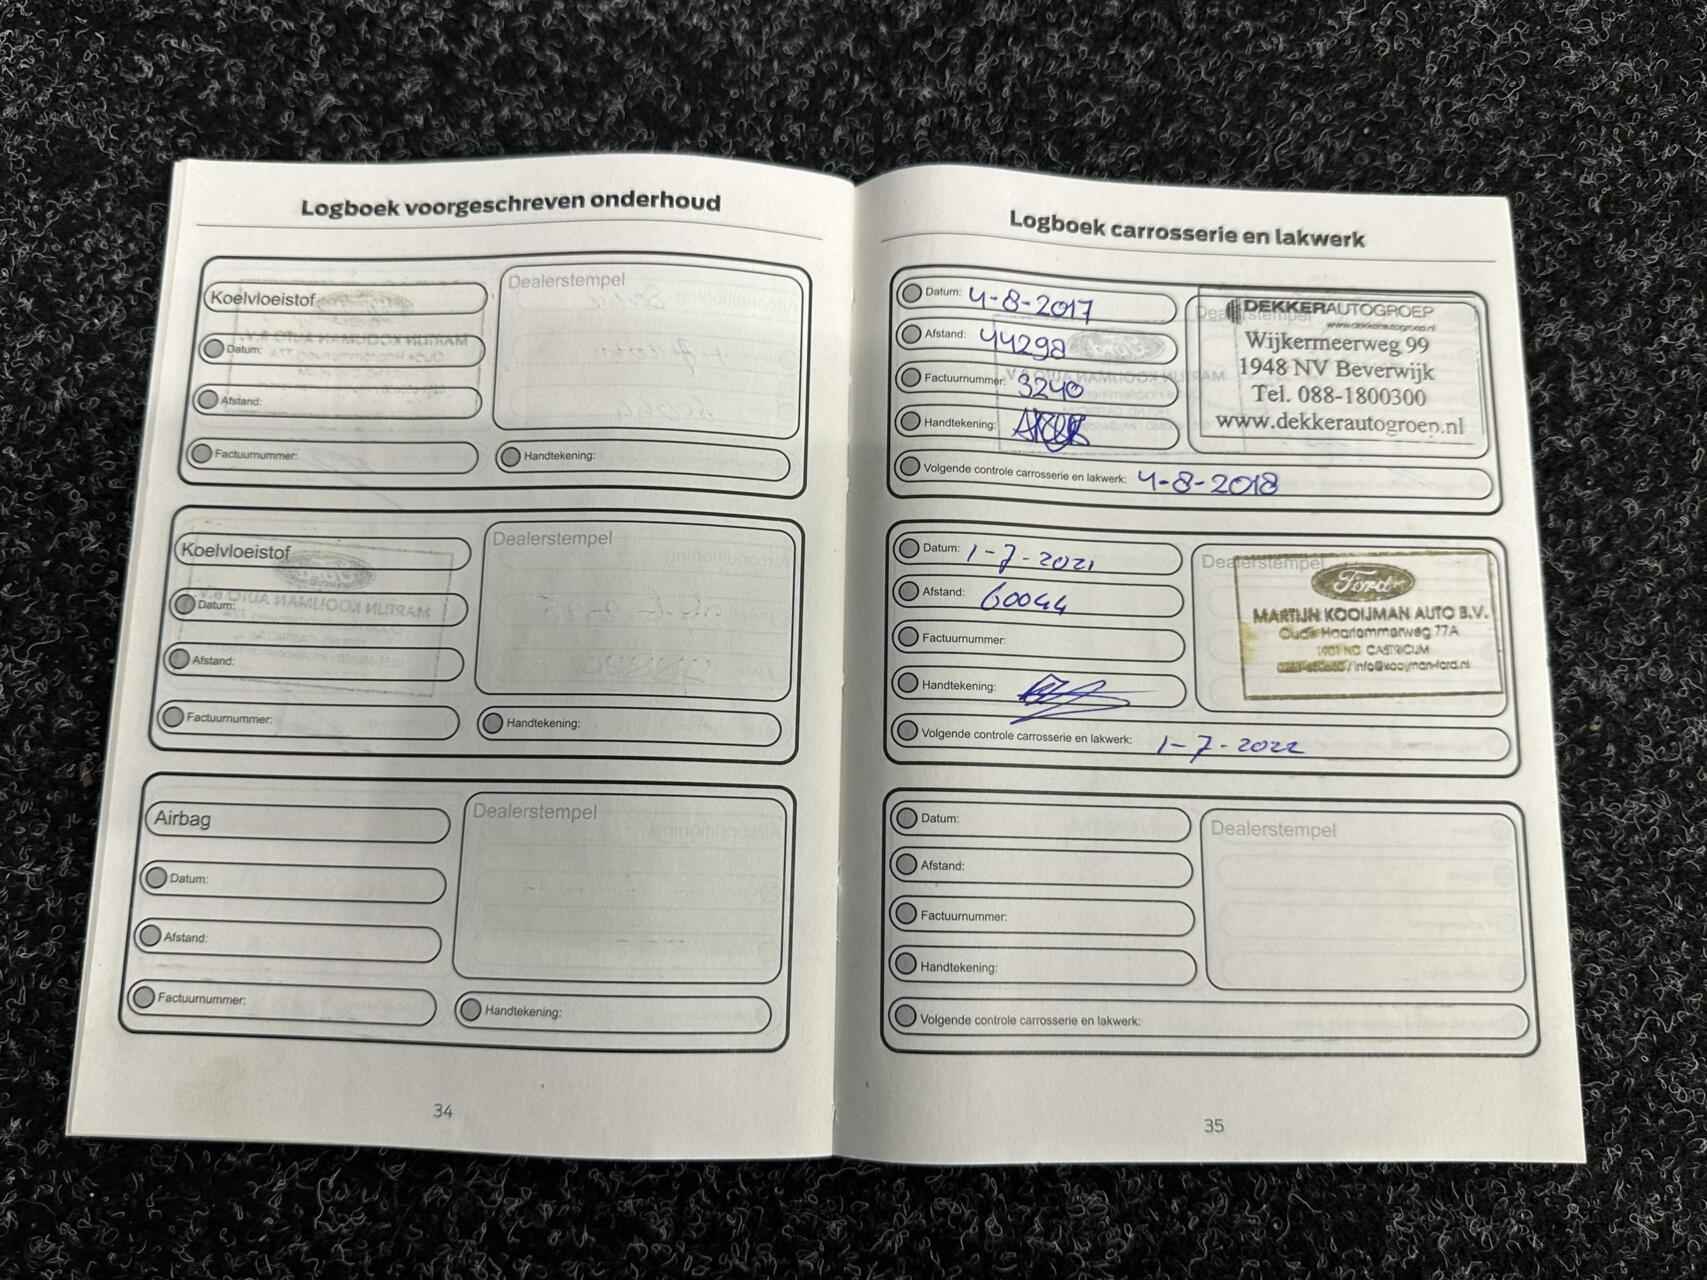 Logboek voorgeschreven onderhoud
Koelvloeistof
Dealerstempel
Datum:
Afstand:
Factuurnummer:
Handtekening:
Koelvloeistof
Dealerstempel
Datum:
Afstand:
Factuurnummer:
Handtekening:
Airbag
Dealerstempel
Datum:
Afstand:
Factuurnummer:
Handtekening:
34
Logboek carrosserie en lakwerk
Datum: 4-8-2017
Afstand: 44298
Factuurnummer: 3240
Handtekening:
Dealerstempel
DEKKERAUTOGROEP
www.dekkerautogroep.nl
Wijkermeerweg 99
1948 NV Beverwijk
Tel. 088-1800300
www.dekkerautogroep.nl
Volgende controle carrosserie en lakwerk: 4-8-2018
Datum: 1-7-2021
Afstand: 60044
Factuurnummer:
Handtekening:
Dealerstempel
Ford
MARTIJN KOOIJMAN AUTO B.V.
Oude Haarlemmerweg 77A
1901 ND CASTRICUM
/ info@kooijman-ford.nl
Volgende controle carrosserie en lakwerk: 1-7-2022
Datum:
Afstand:
Factuurnummer:
Handtekening:
Dealerstempel
Volgende controle carrosserie en lakwerk:
35